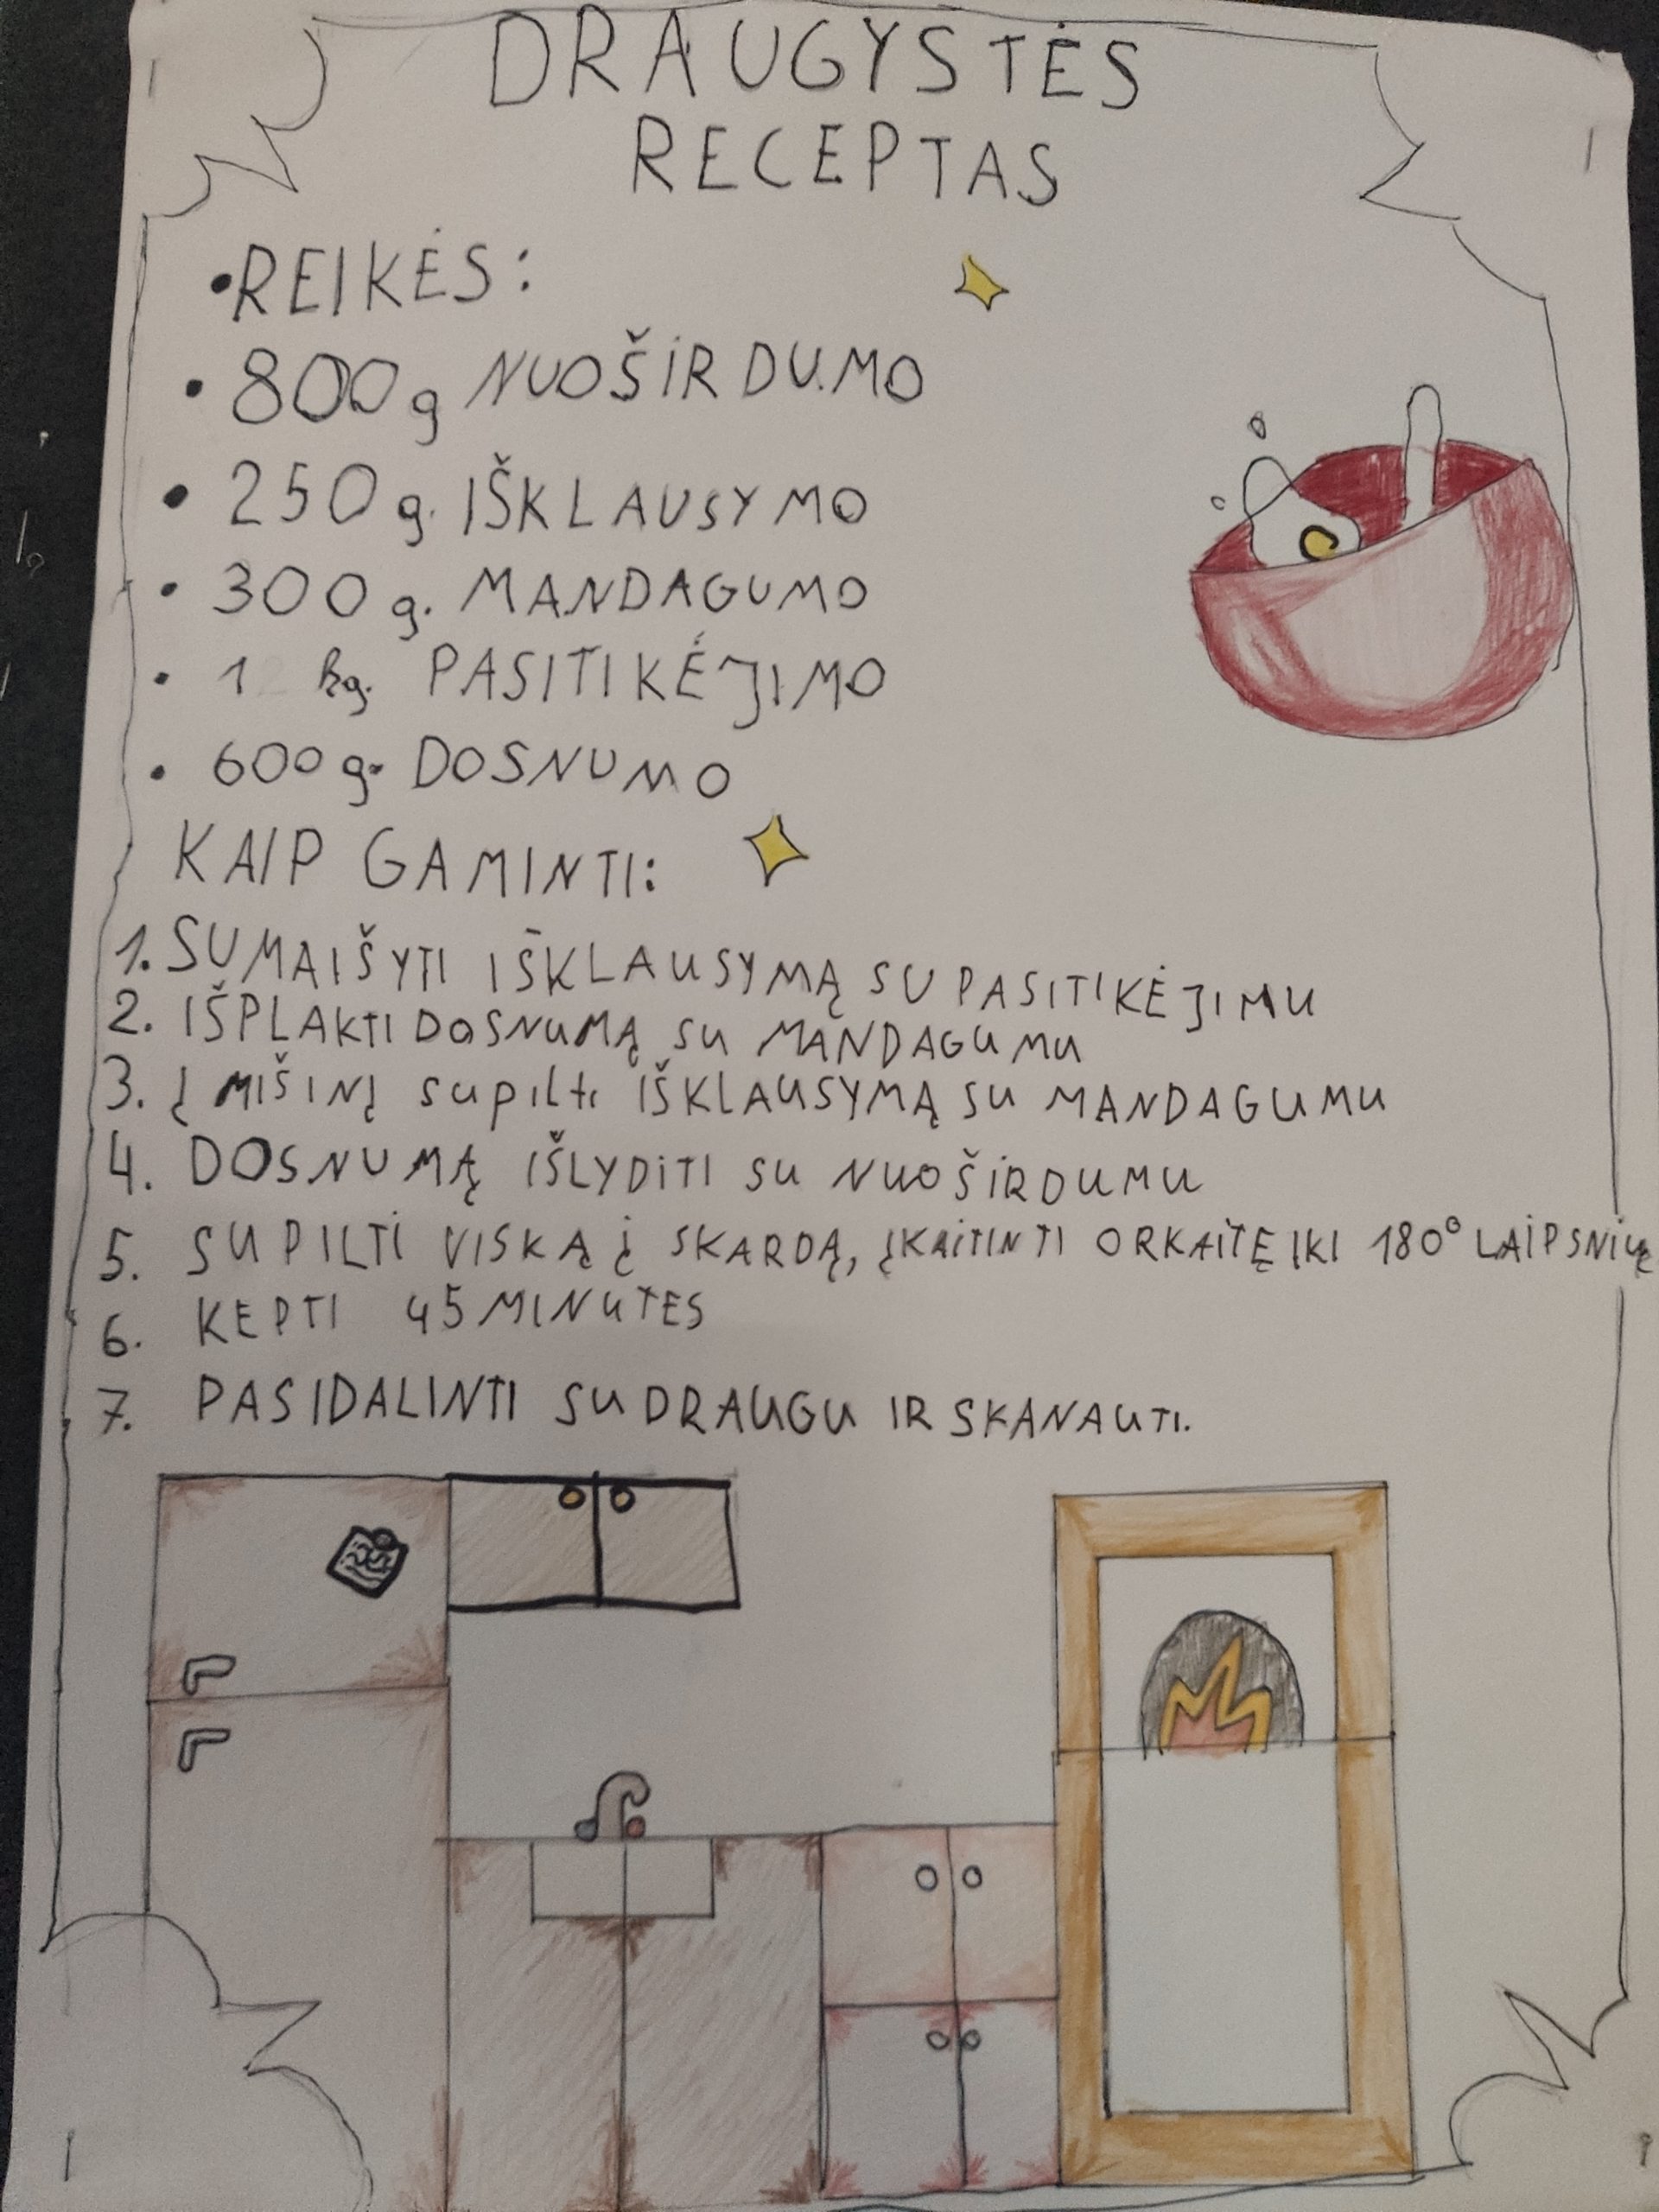 DRAUGYSTĖS
RECEPTAS
•REIKĖS:
• 800g NUOŠIRDUMO
• 250g. IŠKLAUSYMO
• 300g. MANDAGUMO
• 1 kg. PASITIKĖJIMO
• 600g. DOSNUMO
KAIP GAMINTI:
1. SUMAIŠYTI IŠKLAUSYMĄ SU PASITIKĖJIMU
2. IŠPLAKTI DOSNUMĄ SU MANDAGUMU
3. Į MIŠINĮ supilti IŠKLAUSYMĄ SU MANDAGUMU
4. DOSNUMĄ IŠLYDITI SU NUOŠIRDUMU
5. SUPILTI VISKĄ Į SKARDĄ, ĮKAITINTI ORKAITĘ IKI 180° LAIPSNIŲ
6. KEPTI 45 MINUTES
7. PASIDALINTI SU DRAUGU IR SKANAUTI.